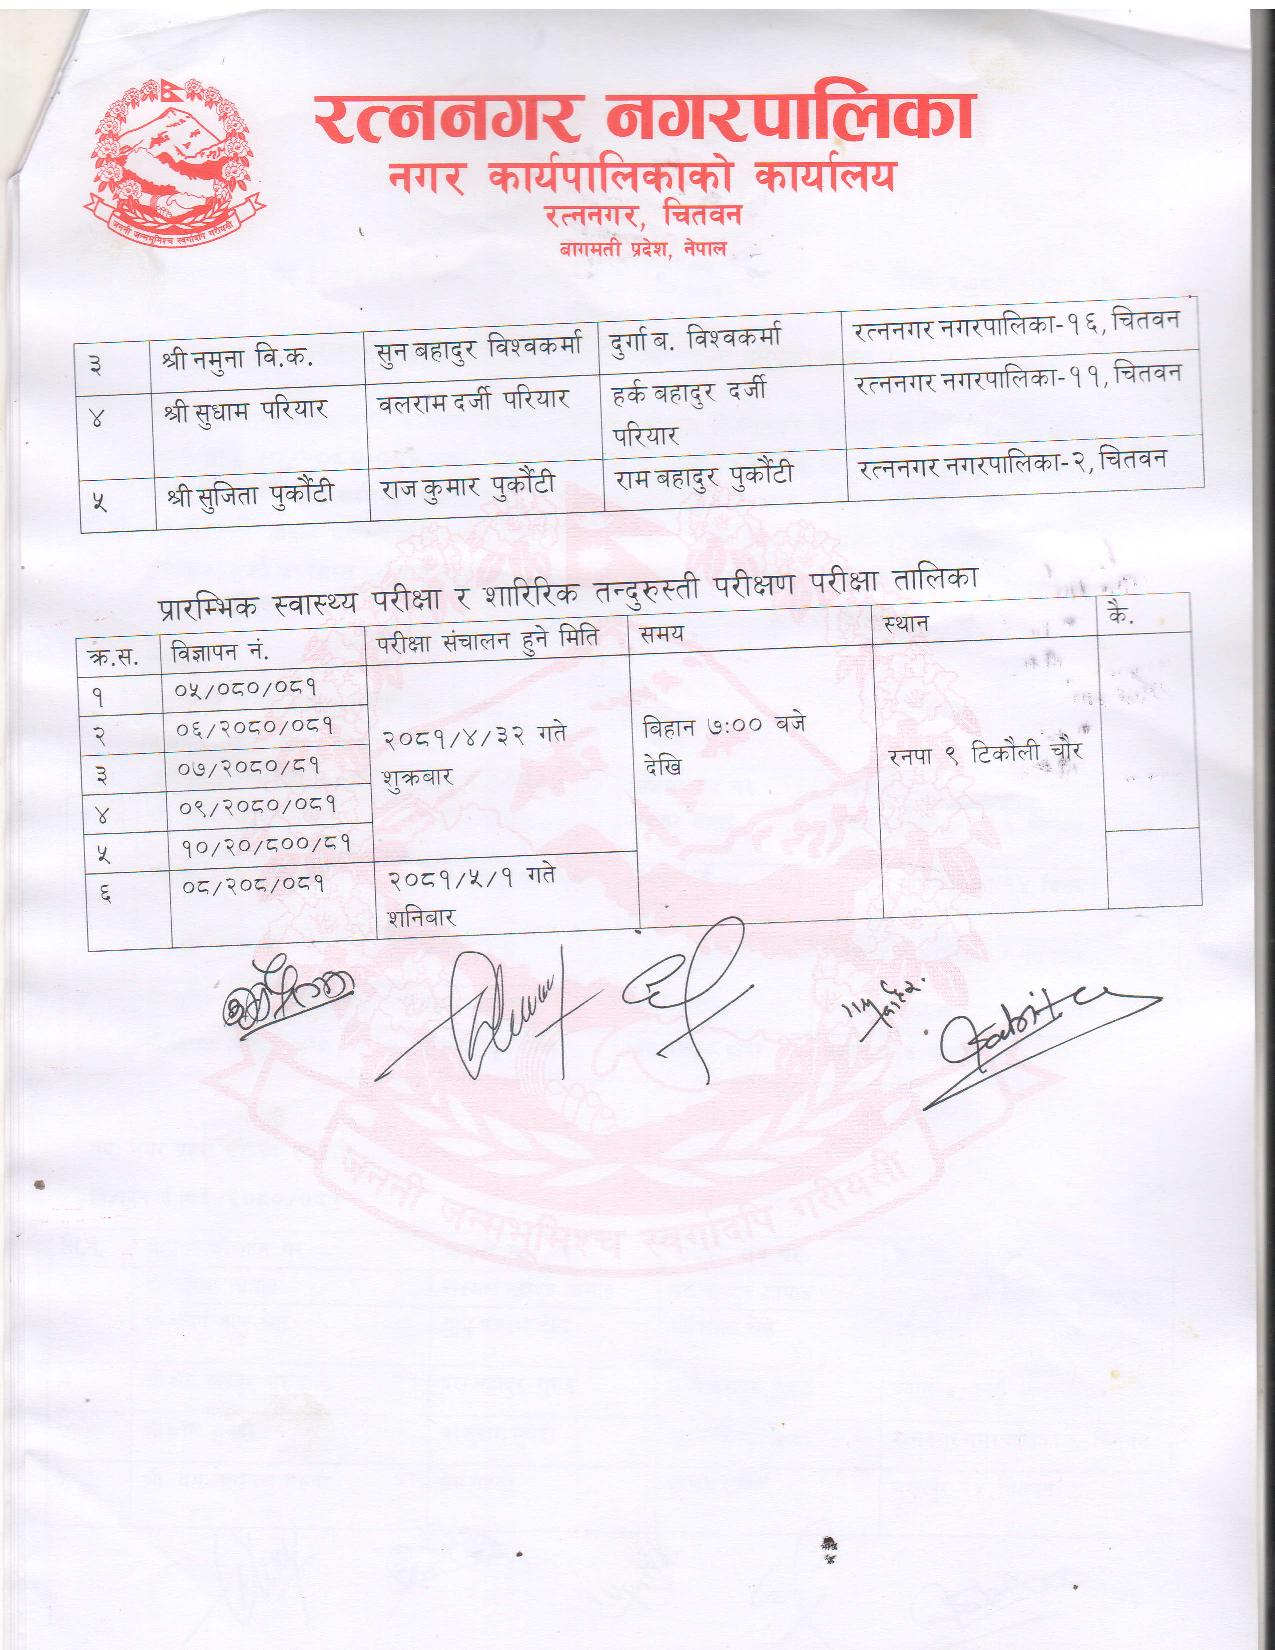 रत्ननगर नगरपालिका
नगर कार्यपालिकाको कार्यालय
रत्ननगर, चितवन
बागमती प्रदेश, नेपाल
जननी जन्मभूमिश्च स्वर्गादपि गरीयसी
३ श्री नमुना वि.क. सुन बहादुर विश्वकर्मा दुर्गा ब. विश्वकर्मा रत्ननगर नगरपालिका-१६, चितवन
४ श्री सुधाम परियार वलराम दर्जी परियार हर्क बहादुर दर्जी रत्ननगर नगरपालिका-११, चितवन
परियार
५ श्री सुजिता पुर्कौटी राज कुमार पुर्कौटी राम बहादुर पुर्कौटी रत्ननगर नगरपालिका-२, चितवन
प्रारम्भिक स्वास्थ्य परीक्षा र शारिरिक तन्दुरुस्ती परीक्षण परीक्षा तालिका
क्र.स. विज्ञापन नं. परीक्षा संचालन हुने मिति समय स्थान कै.
१ ०५/०८०/०८१
२ ०६/२०८०/०८१ २०८१/४/३२ गते बिहान ७:०० बजे
३ ०७/२०८०/८१ शुक्रबार देखि रनपा ९ टिकौली चौर
४ ०९/२०८०/०८१
५ १०/२०/८००/८१
६ ०८/२०८/०८१ २०८१/५/१ गते
शनिबार
जननी जन्मभूमिश्च स्वर्गादपि गरीयसी